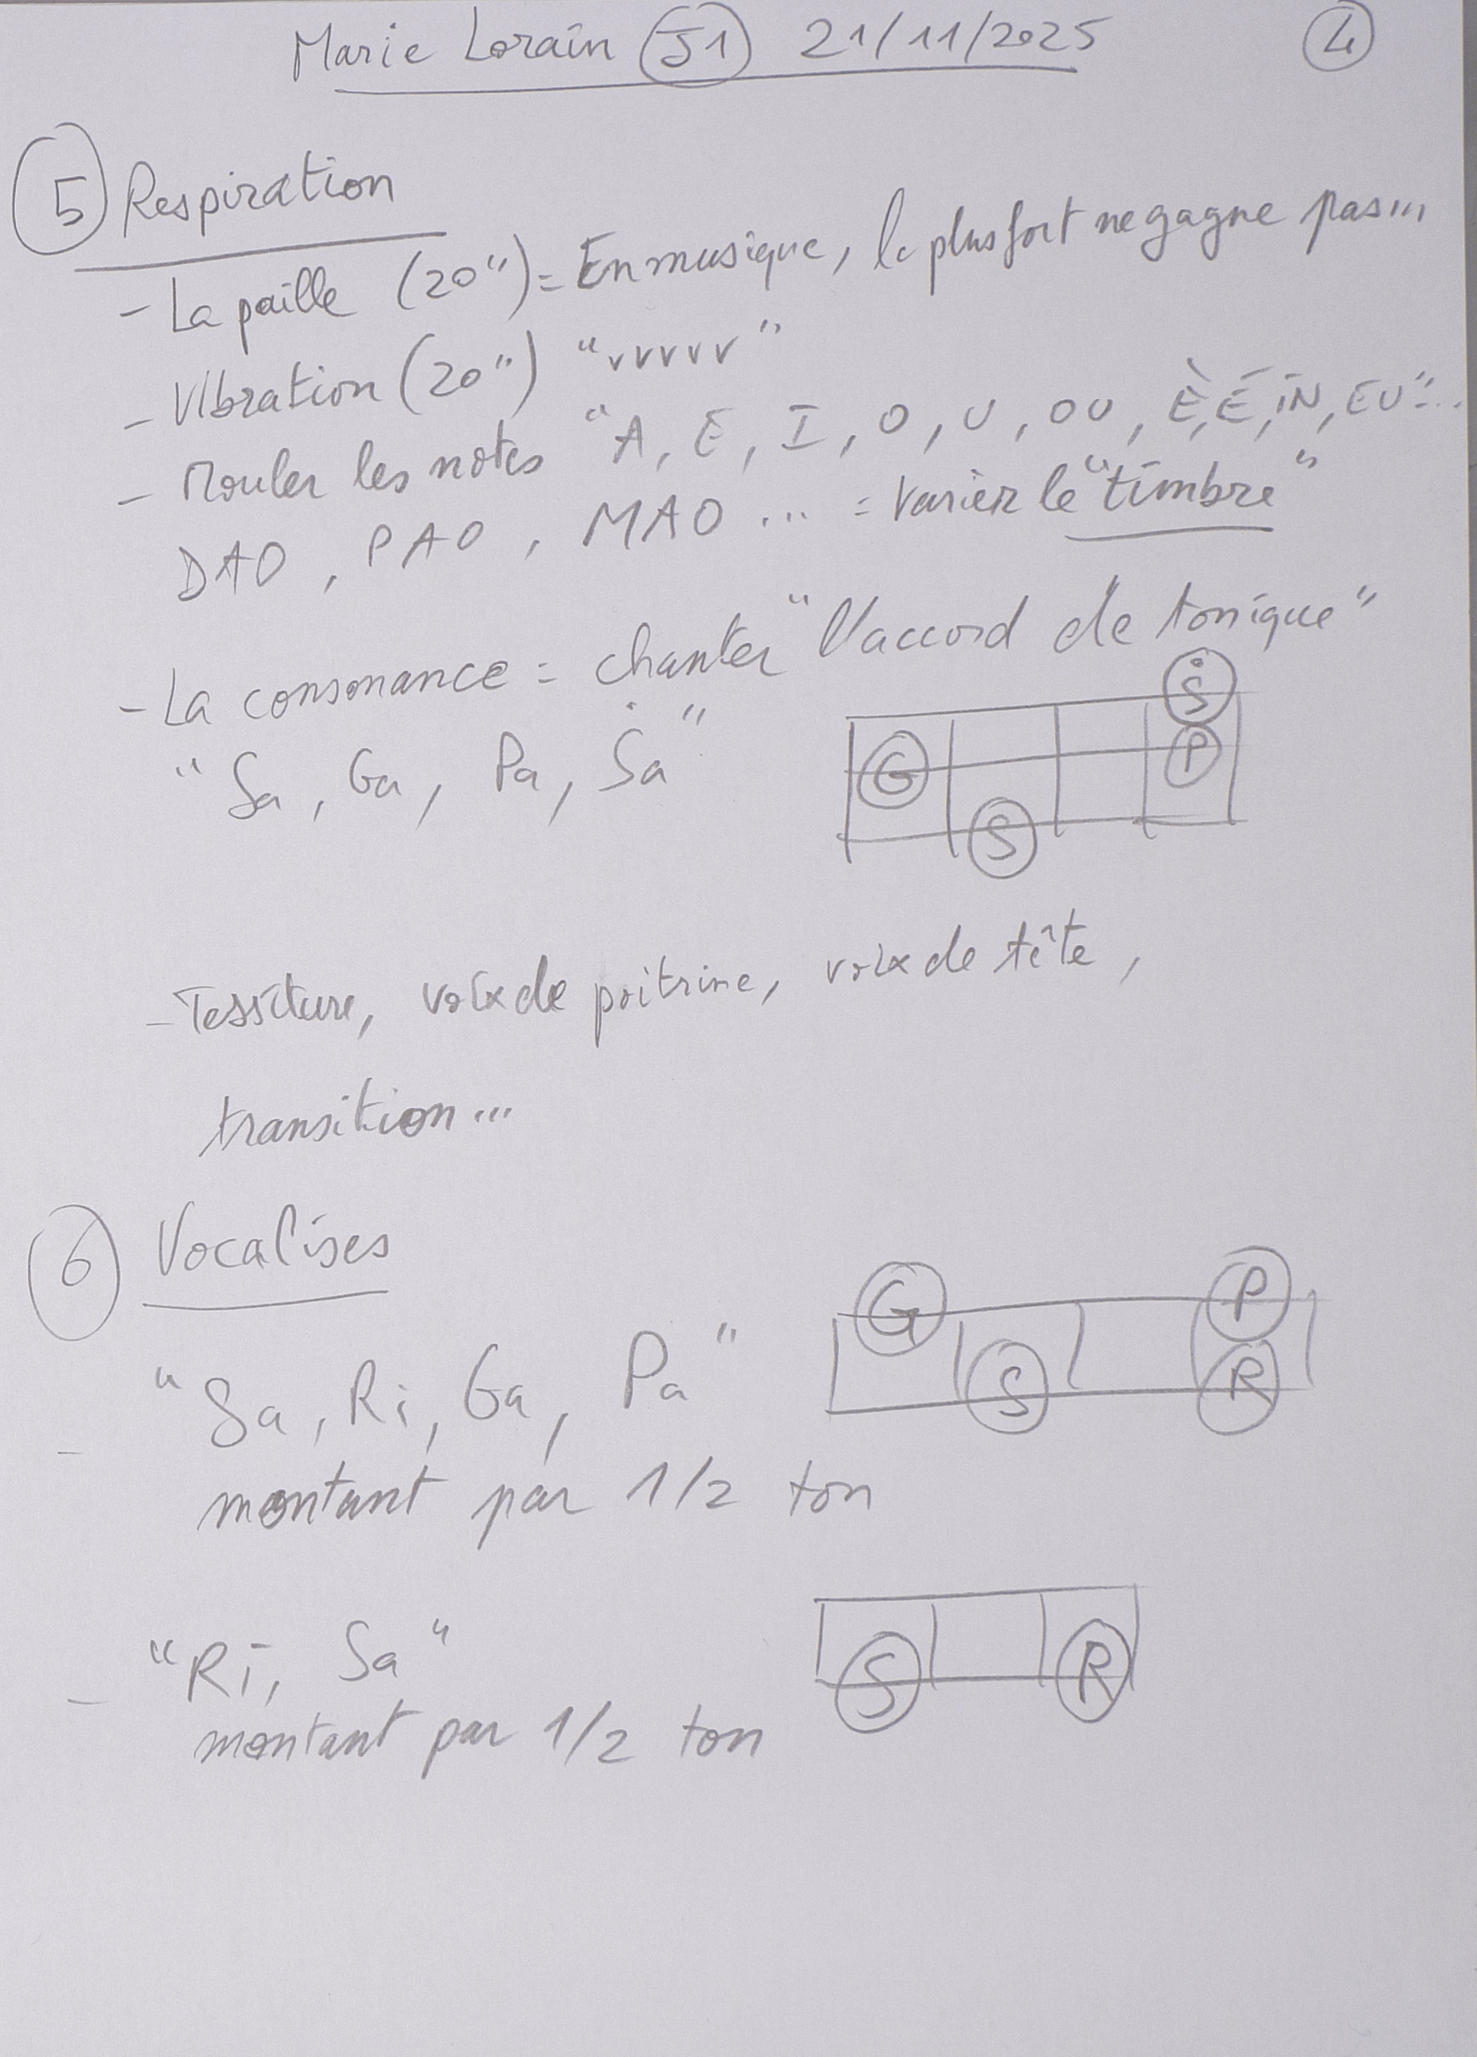 Marie Lorain J1 21/11/2025 4
5 Respiration
- La paille (20") = En musique, le plus fort ne gagne pas...
- Vibration (20") "vvvvv"
- Mouler les notes "A, E, I, O, U, OU, È, É, IN, EU"...
DAO, PAO, MAO ... = Varier le "timbre"
- La consonance = chanter "l'accord de tonique"
"Sa, Ga, Pa, Ṡa"
Ṡ
G P
S
- Tessiture, voix de poitrine, voix de tête,
transition...
6 Vocalises
G P
- "Sa, Ri, Ga, Pa"
S R
montant par 1/2 ton
- "Ri, Sa"
S R
montant par 1/2 ton